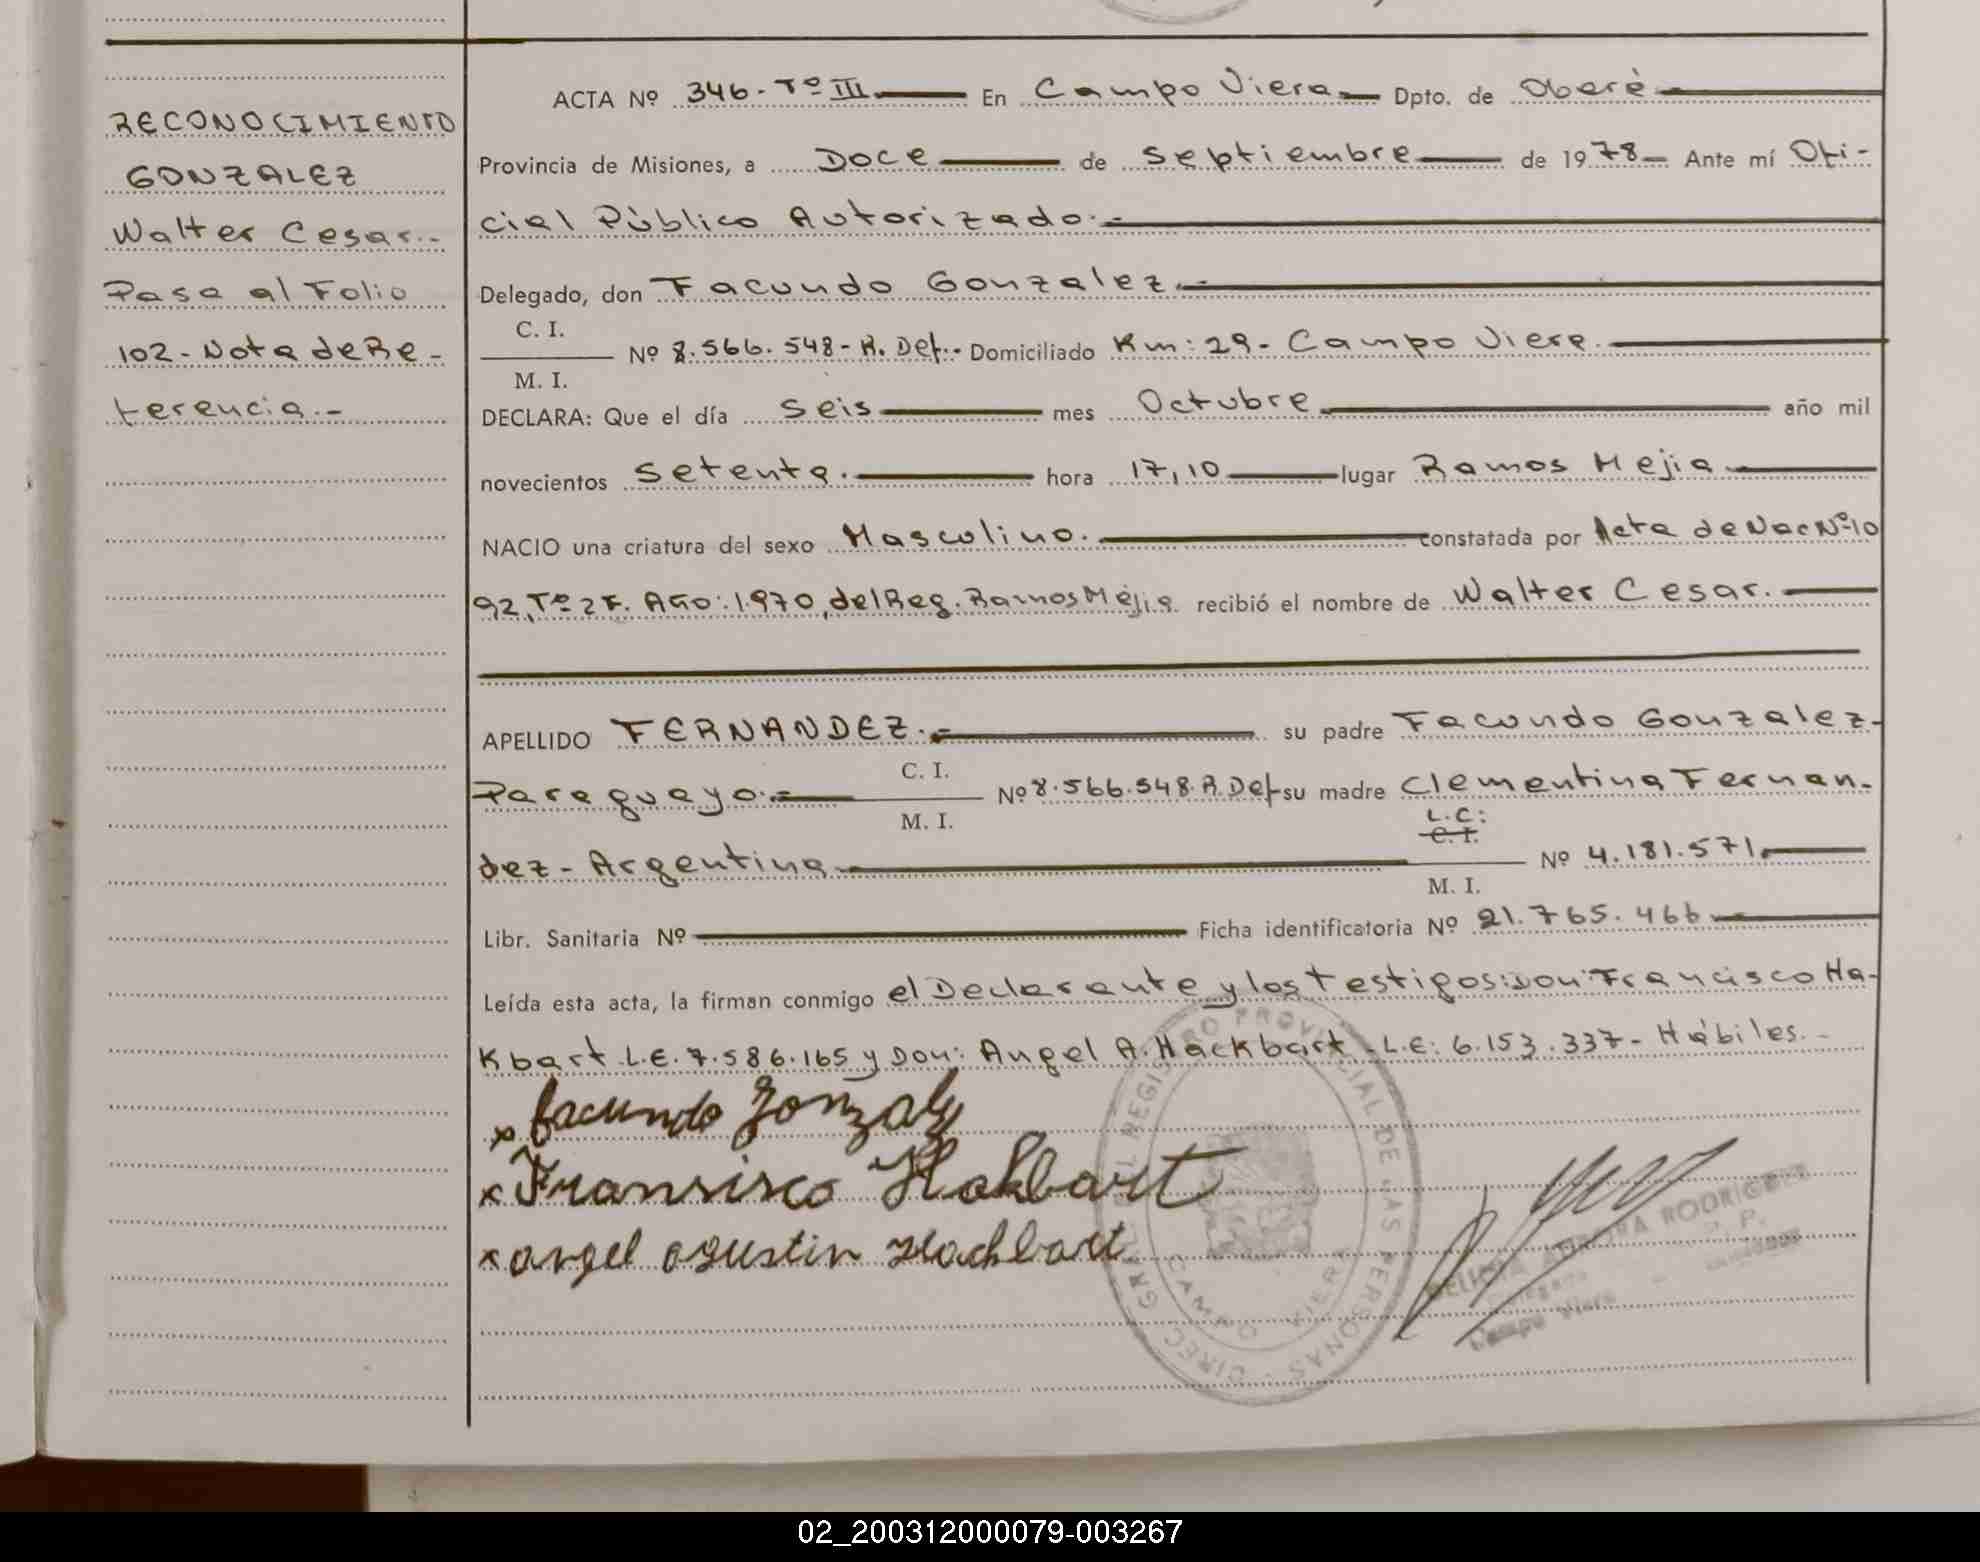 RECONOCIMIENTO
GONZALEZ
Walter Cesar.-
Pasa al Folio
102 - Nota de Re-
ferencia.-
ACTA Nº 346-Tº III En Campo Viera Dpto. de Oberá
Provincia de Misiones, a Doce de Septiembre de 1978 Ante mí Ofi-
cial Público Autorizado.-
Delegado, don Facundo Gonzalez.-
C. I.
Nº 8.566.548-R. Def.- Domiciliado Km: 29- Campo Viera.
M. I.
DECLARA: Que el día Seis mes Octubre año mil
novecientos Setenta. hora 17,10 lugar Ramos Mejia
NACIO una criatura del sexo Masculino. constatada por Acta de Nac Nº 10
92, Tº 2 F. Año: 1.970, del Reg. Ramos Mejia recibió el nombre de Walter Cesar.
APELLIDO FERNANDEZ.- su padre Facundo Gonzalez-
C. I.
Paraguayo.- Nº 8.566.548.R.Def- su madre Clementina Fernan-
M. I.
L.C:
C. I.
dez- Argentina Nº 4.181.571.
M. I.
Libr. Sanitaria Nº Ficha identificatoria Nº 21.765.466
Leída esta acta, la firman conmigo el Declarante y los testigos: Don: Francisco Ha-
Kbart L.E. 7.586.165 y Don: Angel A. Hackbart - L.E: 6.153.337- Hábiles.-
x facundo Gonzalez
x Fransisco Hakbart
x angel agustin Hackbart
DIREC. GRAL. DEL REGISTRO PROVINCIAL DE LAS PERSONAS
CAMPO VIERA
RODRIGUEZ
Delegado
Campo Viera
02_200312000079-003267